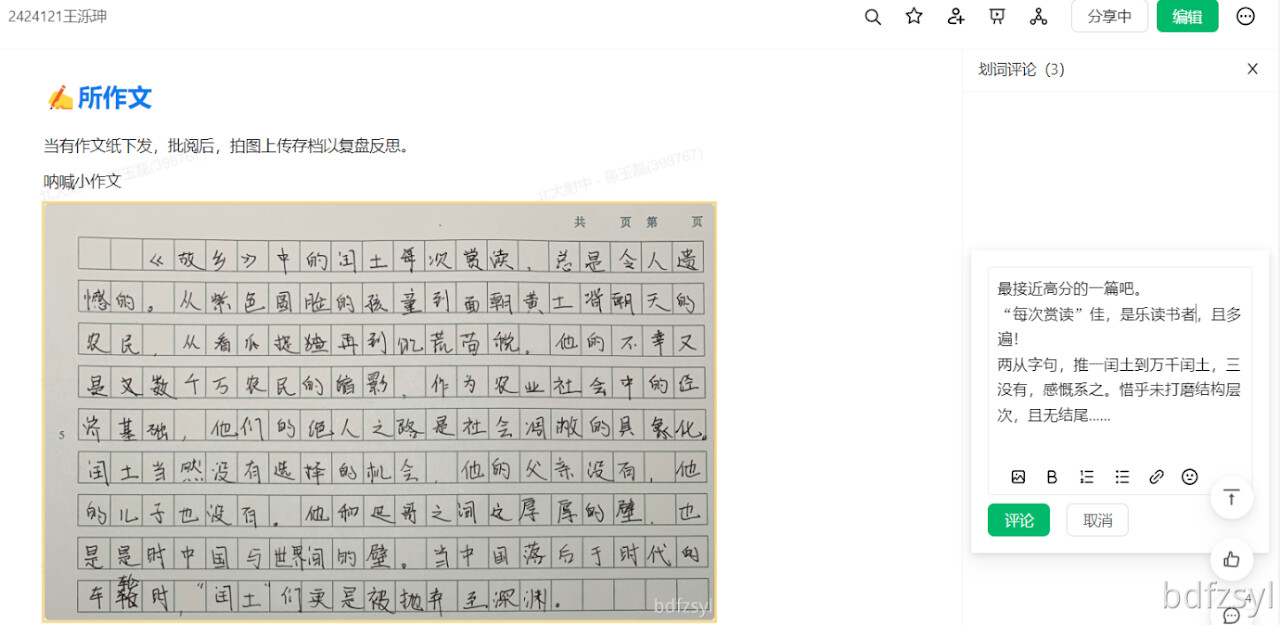 2424121王泺珅
分享中
编辑
划词评论（3）
所作文
当有作文纸下发，批阅后，拍图上传存档以复盘反思。
呐喊小作文
共 页 第 页
《故乡》中的闰土每次赏读，总是令人遗
憾的。从紫色圆脸的孩童到面朝黄土背朝天的
农民，从看瓜捉猹再到饥荒苛税。他的不幸又
是又数千万农民的缩影，作为农业社会中的经
济基础，他们的绝人之路是社会凋敝的具象化。
5
闰土当然没有选择的机会，他的父亲没有，他
的儿子也没有。他和迅哥之间这厚厚的壁，也
是是时中国与世界间的壁。当中国落后于时代的
车轮时，“闰土”们更是被抛弃至深渊。
bdfzsyl
最接近高分的一篇吧。
“每次赏读”佳，是乐读书者，且多
遍！
两从字句，推一闰土到万千闰土，三
没有，感慨系之。惜乎未打磨结构层
次，且无结尾……
B
评论
取消
bdfzsyl
4